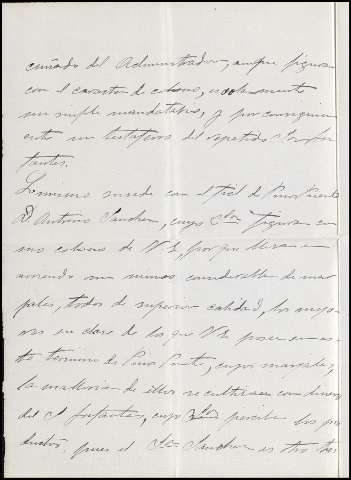 cuñado del Administrador, aunque figura
con el caracter de colono, es solamente
un simple mandatario, y por consiguiente
este un testaferro del repetido Sor In-
fantes.
Lo mismo sucede con el fiel de Pino Puente
D. Antonio Sanchez, cuyo Sor figura co-
mo colono de V E, por que lleva en
arriendo un numero considerable de mar
jales, todos de superior calidad, los mejo-
res en clase de los que V E posee en es-
te termino de Pino Puente, cuyos marjales,
la malloria de ellos se cultivan con dinero
del S Infantes, cuyo Sor percibe los pro
ductos, pues el Sor Sanchez es otro tes-